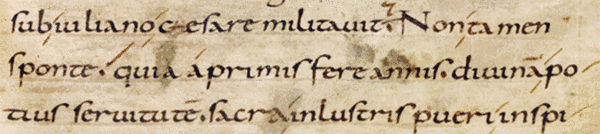 subiuliano cesare militauit. Non tamen
sponte. quia aprimis fere annis. diuinā po
tius seruitutē. sacra inlustris pueri inspi